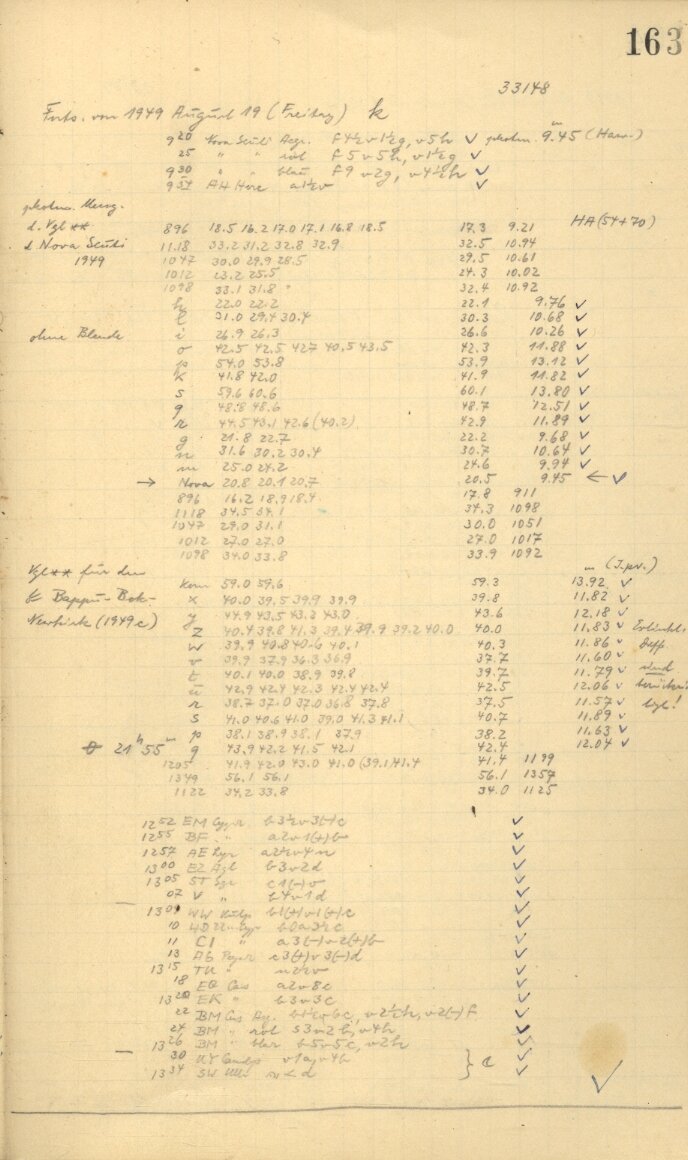 163
33148
Forts. von 1949 August 19 (Freitag) k
9 20 Nova Scuti Aegr. F 4½ v 1½ g, v 5 h ✓ photom. 9.45 (Haw.)
25 " " rot F 5 v 5 h, v 1½ g ✓
9 30 " " blau F 9 v 2 g, v 4½ h ✓
9 51 AH Herc a 1½ v ✓
photom. Messg.
d. Vgl ** 896 18.5 16.2 17.0 17.1 16.8 18.5 17.3 9.21 HA (54+70)
d. Nova Scuti 1118 33.2 31.2 32.8 32.9 32.5 10.94
1949 1047 30.0 29.9 28.5 29.5 10.61
1012 23.2 25.5 24.3 10.02
1098 33.1 31.8 32.4 10.92
h 22.0 22.2 22.1 9.76 ✓
l 31.0 29.4 30.4 30.3 10.68 ✓
ohne Blende i 26.9 26.3 26.6 10.26 ✓
o 42.5 42.5 42.7 40.5 43.5 42.3 11.88 ✓
p 54.0 53.8 53.9 13.12 ✓
k 41.8 42.0 41.9 11.82 ✓
s 59.6 60.6 60.1 13.80 ✓
q 48.8 48.6 48.7 12.51 ✓
r 44.5 43.1 42.6 (40.2) 42.9 11.89 ✓
g 21.8 22.7 22.2 9.68 ✓
n 31.6 30.2 30.4 30.7 10.64 ✓
m 25.0 24.2 24.6 9.94 ✓
→ Nova 20.8 20.1 20.7 20.5 9.45 ← ✓
896 16.2 18.9 18.4 17.8 911
1118 34.5 34.1 34.3 1098
1047 29.0 31.1 30.0 1051
1012 27.0 27.0 27.0 1017
1098 34.0 33.8 33.9 1092
Vgl ** für den m (I.pv.)
Kom 59.0 59.6 59.3 13.92 ✓
k Bappu-Bok- x 40.0 39.5 39.9 39.9 39.8 11.82 ✓
Newkirk (1949c) y 44.9 43.5 43.2 43.0 43.6 12.18 ✓
z 40.4 39.8 41.3 39.4 39.9 39.2 40.0 40.0 11.83 ✓
w 39.9 40.8 40.6 40.1 40.3 11.86 ✓
v 39.9 37.9 36.3 36.9 37.7 11.60 ✓
t 40.1 40.0 38.9 39.8 39.7 11.79 ✓ sind
u 42.9 42.4 42.3 42.4 42.4 42.5 12.06 ✓
r 38.7 37.0 37.0 36.8 37.8 37.5 11.57 ✓
s 41.0 40.6 41.0 39.0 41.3 41.1 40.7 11.89 ✓
p 38.1 38.9 38.1 37.9 38.2 11.63 ✓
21 h 55 m q 43.9 42.2 41.5 42.1 42.4 12.04 ✓
1205 41.9 42.0 43.0 41.0 (39.1) 41.4 41.4 1199
1349 56.1 56.1 56.1 1357
1122 34.2 33.8 34.0 1125
12 52 EM Cygni b 3½ v 3(-) c ✓
12 55 BF " a 2 v 1(+) b ✓
12 57 AE Lyr a 2½ v 4 n ✓
13 00 EZ Aql b 3 v 2 d ✓
13 05 ST Sge c 1(-) v ✓
07 V " b 4 v 1 d ✓
13 09 WW Vulp b 1(+) v 1(+) c ✓
10 b 0 a 3½ c ✓
11 CI " a 3(-) v 2(+) b ✓
13 AG Pegas c 3(+) v 3(-) d ✓
13 15 TU " n 2½ v ✓
18 EQ Cas a 2 v 8 c ✓
13 20 EK " b 3 v 3 c ✓
22 BM Cas Aeg. b 1½ v 6 c, v 2½ h, v 2(-) F ✓
24 BM " rot s 3 v 2 h, v 4 h, ✓
13 26 BM " blau b 5 v 5 c, v 2 h ✓
30 UY v 1 a, v 4 b } c ✓
13 34 SW v < d ✓